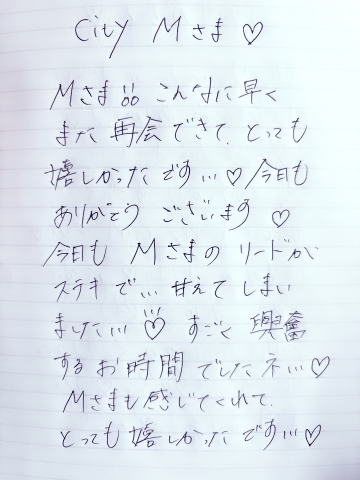 City Mさま♡
Mさま!!! こんなに早く
また再会できて、とっても
嬉しかったです…♡今日も
ありがとうございます♡
今日も Mさまの リードが
ステキで… 甘えてしまい
ました…♡ すごく興奮
するお時間でしたネ…♡
Mさまも感じてくれて、
とっても嬉しかったです…♡